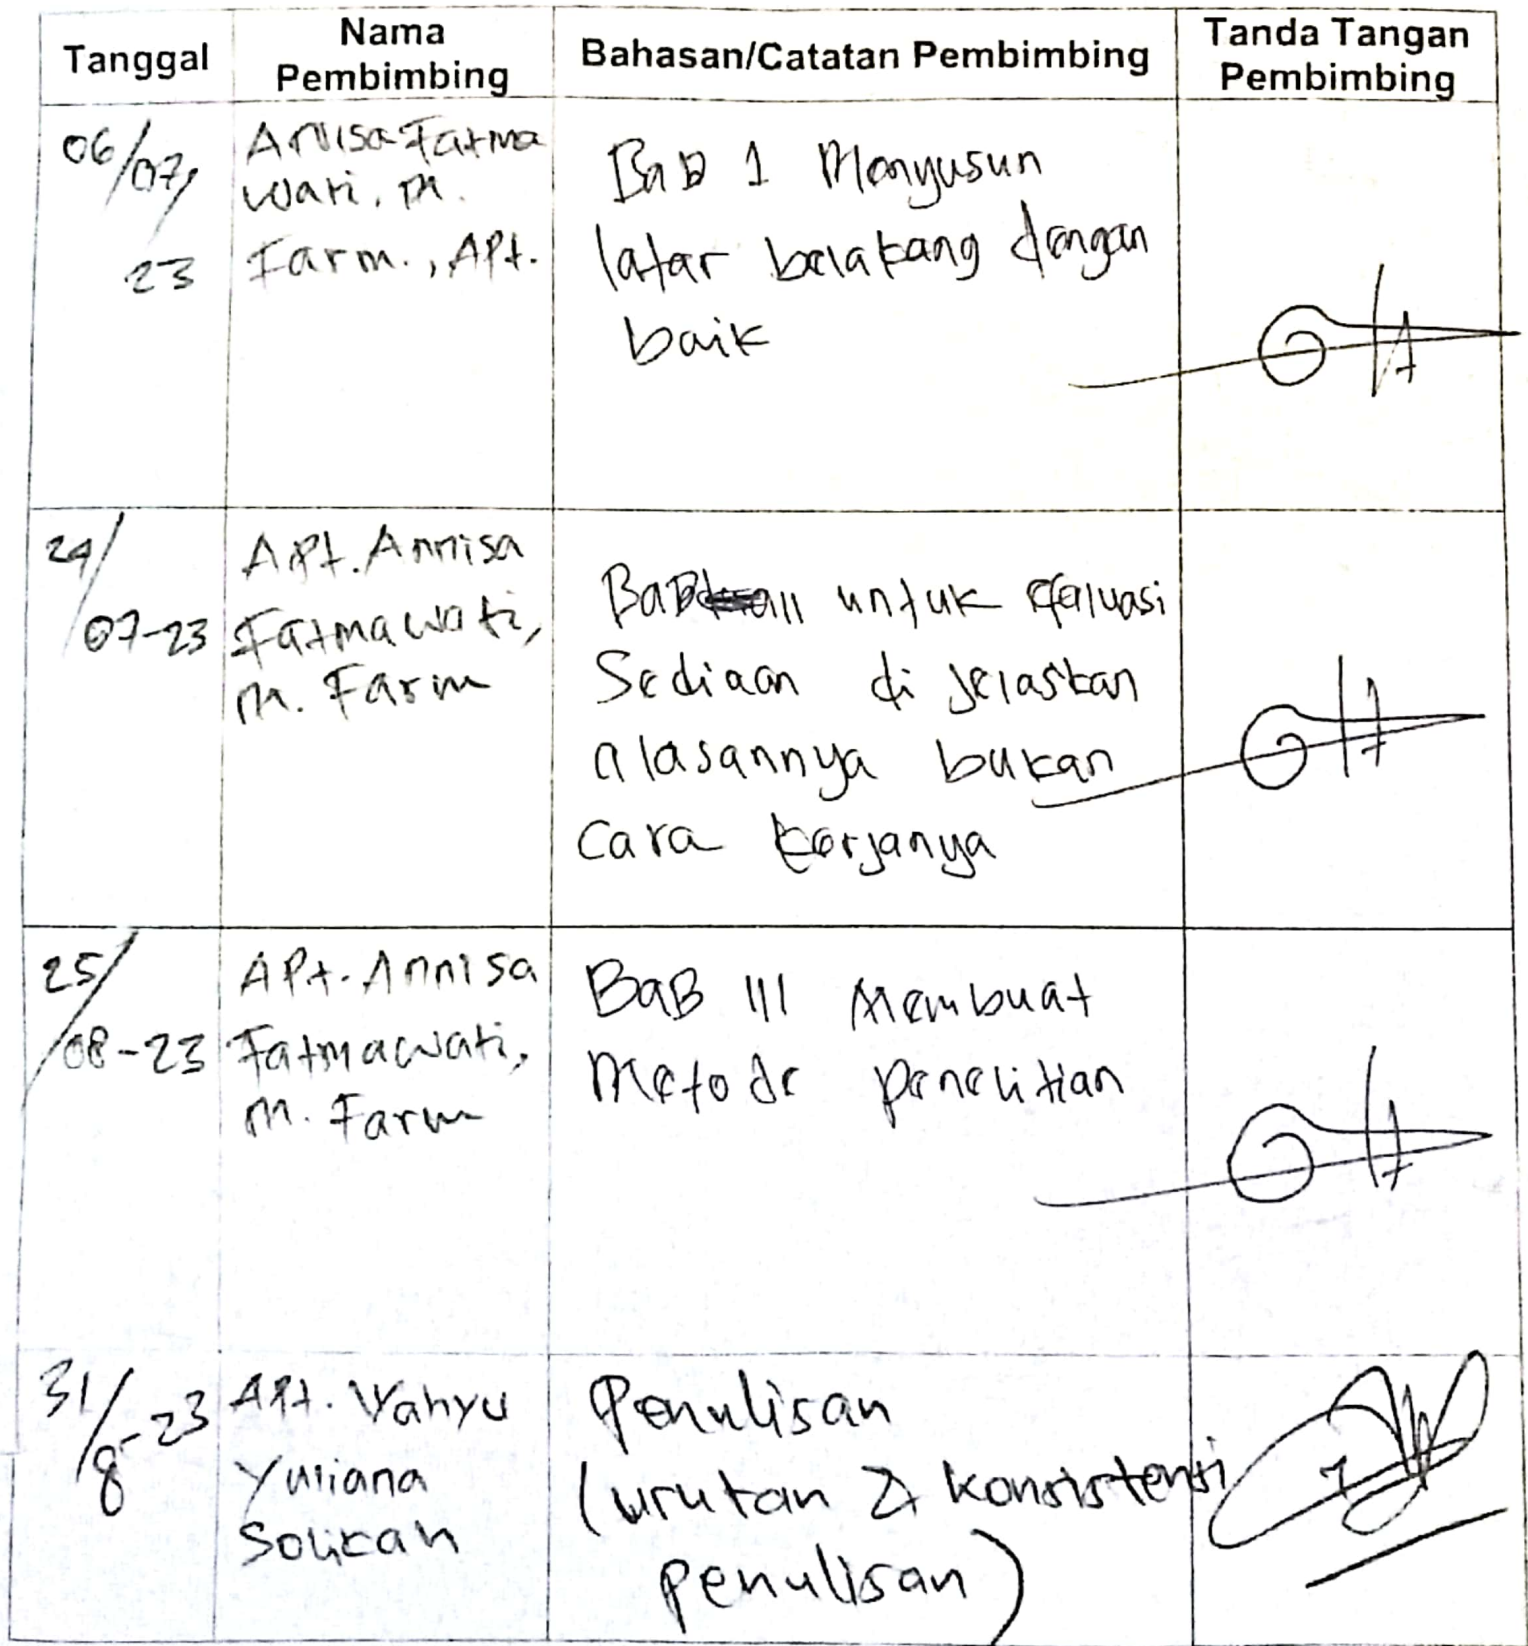 Tanggal
Nama
Pembimbing
Bahasan/Catatan Pembimbing
Tanda Tangan
Pembimbing
06/07,
23
Anisa Fatma
wati, M.
Farm., Apt.
Bab 1 Menyusun
latar belakang dengan
baik
24/
07-23
Apt. Annisa
Fatmawati,
M. Farm
BaB II untuk efaluasi
Sediaan di jelaskan
alasannya bukan
Cara kerjanya
25/
08-23
Apt. Annisa
Fatmawati,
M. Farm
BaB III Membuat
Metode penelitian
31/
8-23
Apt. Wahyu
Yuliana
Solikah
Penulisan
(urutan & konsistensi
penulisan)